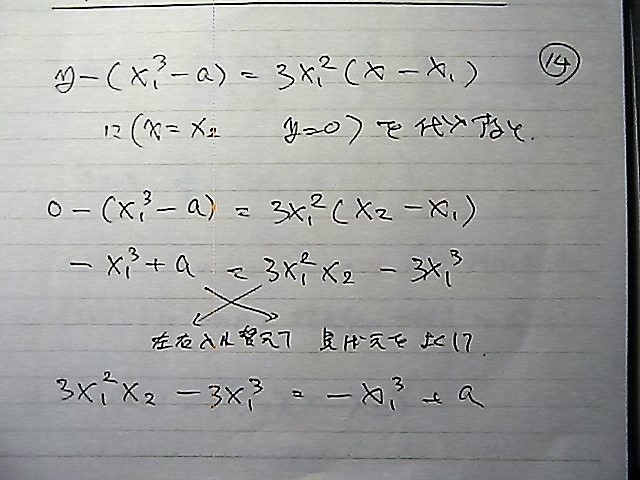 ⑭
y-(x₁³-a) = 3x₁²(x-x₁)
に(x=x₂ y=0)を代入すると.
0-(x₁³-a) = 3x₁²(x₂-x₁)
-x₁³+a = 3x₁²x₂ - 3x₁³
左右入れ替えて 見ばえをよく
3x₁²x₂ - 3x₁³ = -x₁³ + a